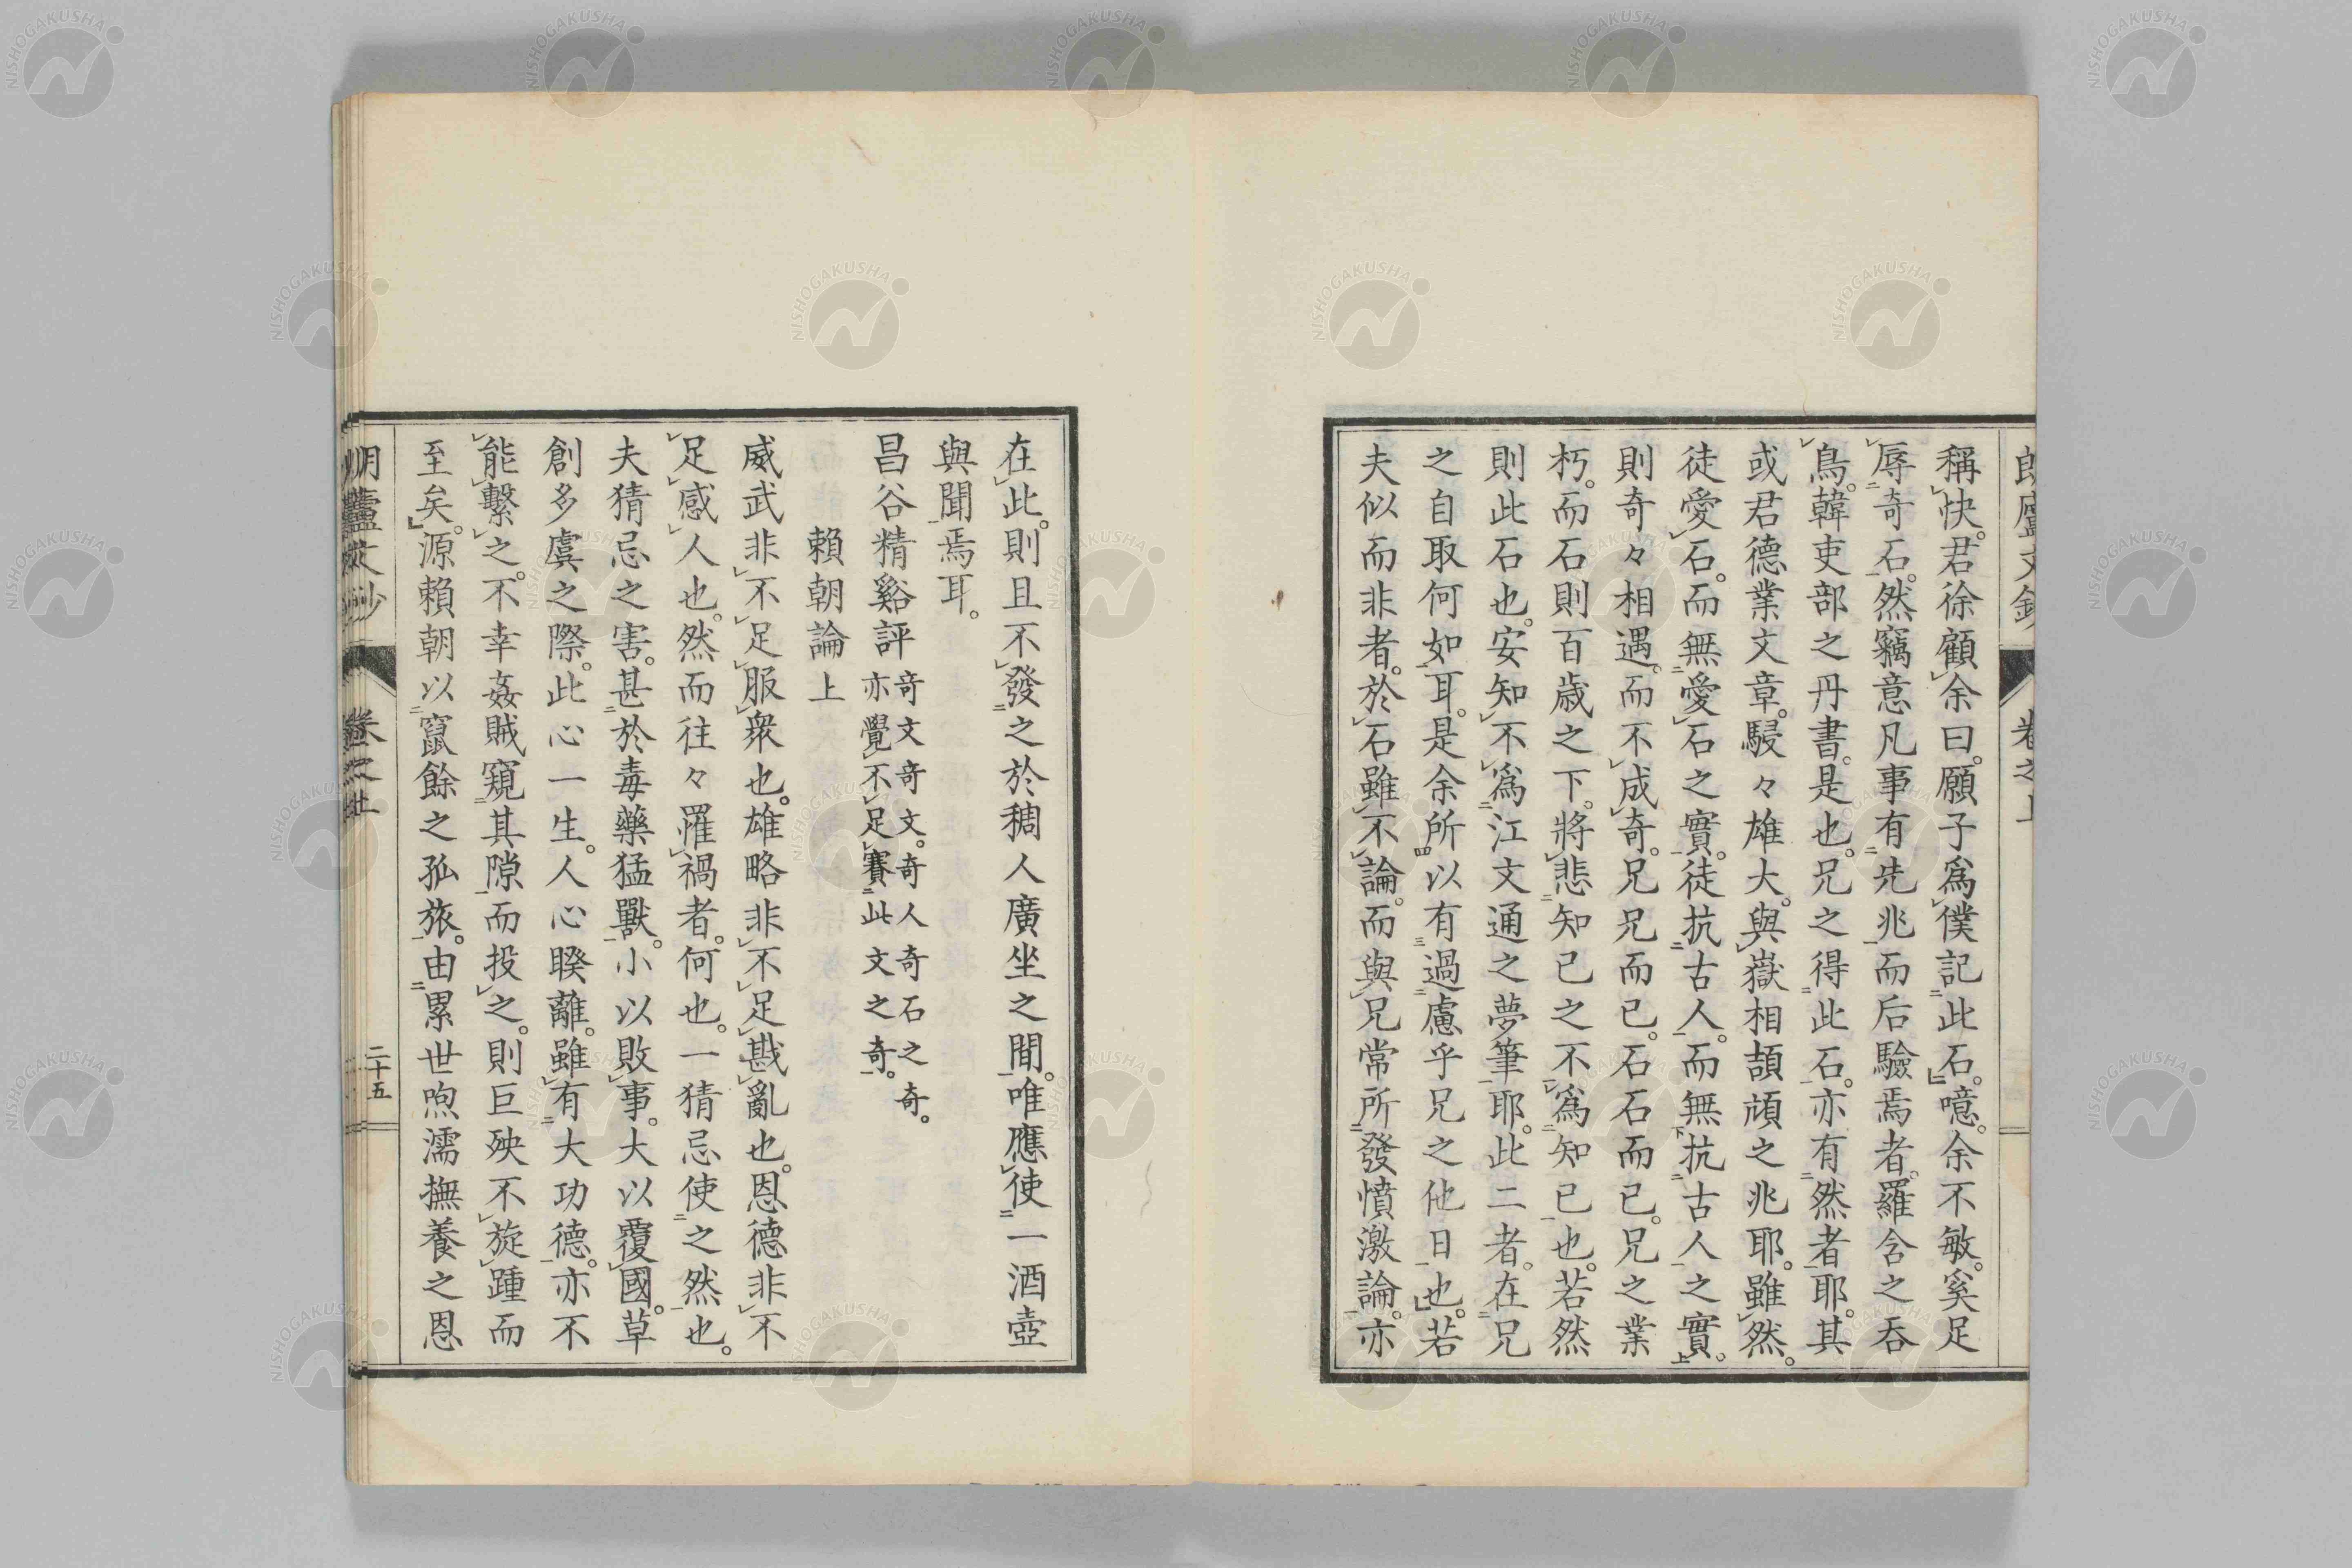 稱快。君徐顧余曰。願子爲僕記此石。噫。余不敏。奚足
辱奇石。然竊意凡事有先兆而后驗焉者。羅含之吞
鳥。韓吏部之丹書。是也。兄之得此石。亦有然者耶。其
或君德業文章。駸々雄大。與嶽相頡頏之兆耶。雖然。
徒愛石。而無愛石之實。徒抗古人。而無抗古人之實。
則奇々相遇。而不成奇。兄兄而已。石石而已。兄之業
朽。而石則百歲之下。將悲知已之不爲知已也。若然
則此石也。安知不爲江文通之夢筆耶。此二者。在兄
之自取何如耳。是余所以有過慮乎兄之他日也。若
夫似而非者。於石雖不論。而與兄常所發憤激論。亦
在此。則且不發之於稠人廣坐之間。唯應使一酒壺
與聞焉耳。
昌谷精谿評 奇文奇文。奇人奇石之奇。
亦覺不足賽此文之奇。
賴朝論上
威武非不足服衆也。雄略非不足戡亂也。恩德非不
足感人也。然而往々罹禍者。何也。一猜忌使之然也。
夫猜忌之害。甚於毒藥猛獸。小以敗事。大以覆國。草
創多虞之際。此心一生。人心睽離。雖有大功德。亦不
能繫之。不幸姦賊窺其隙而投之。則巨殃不旋踵而
至矣。源賴朝以竄餘之孤旅。由累世煦濡撫養之恩
二十五